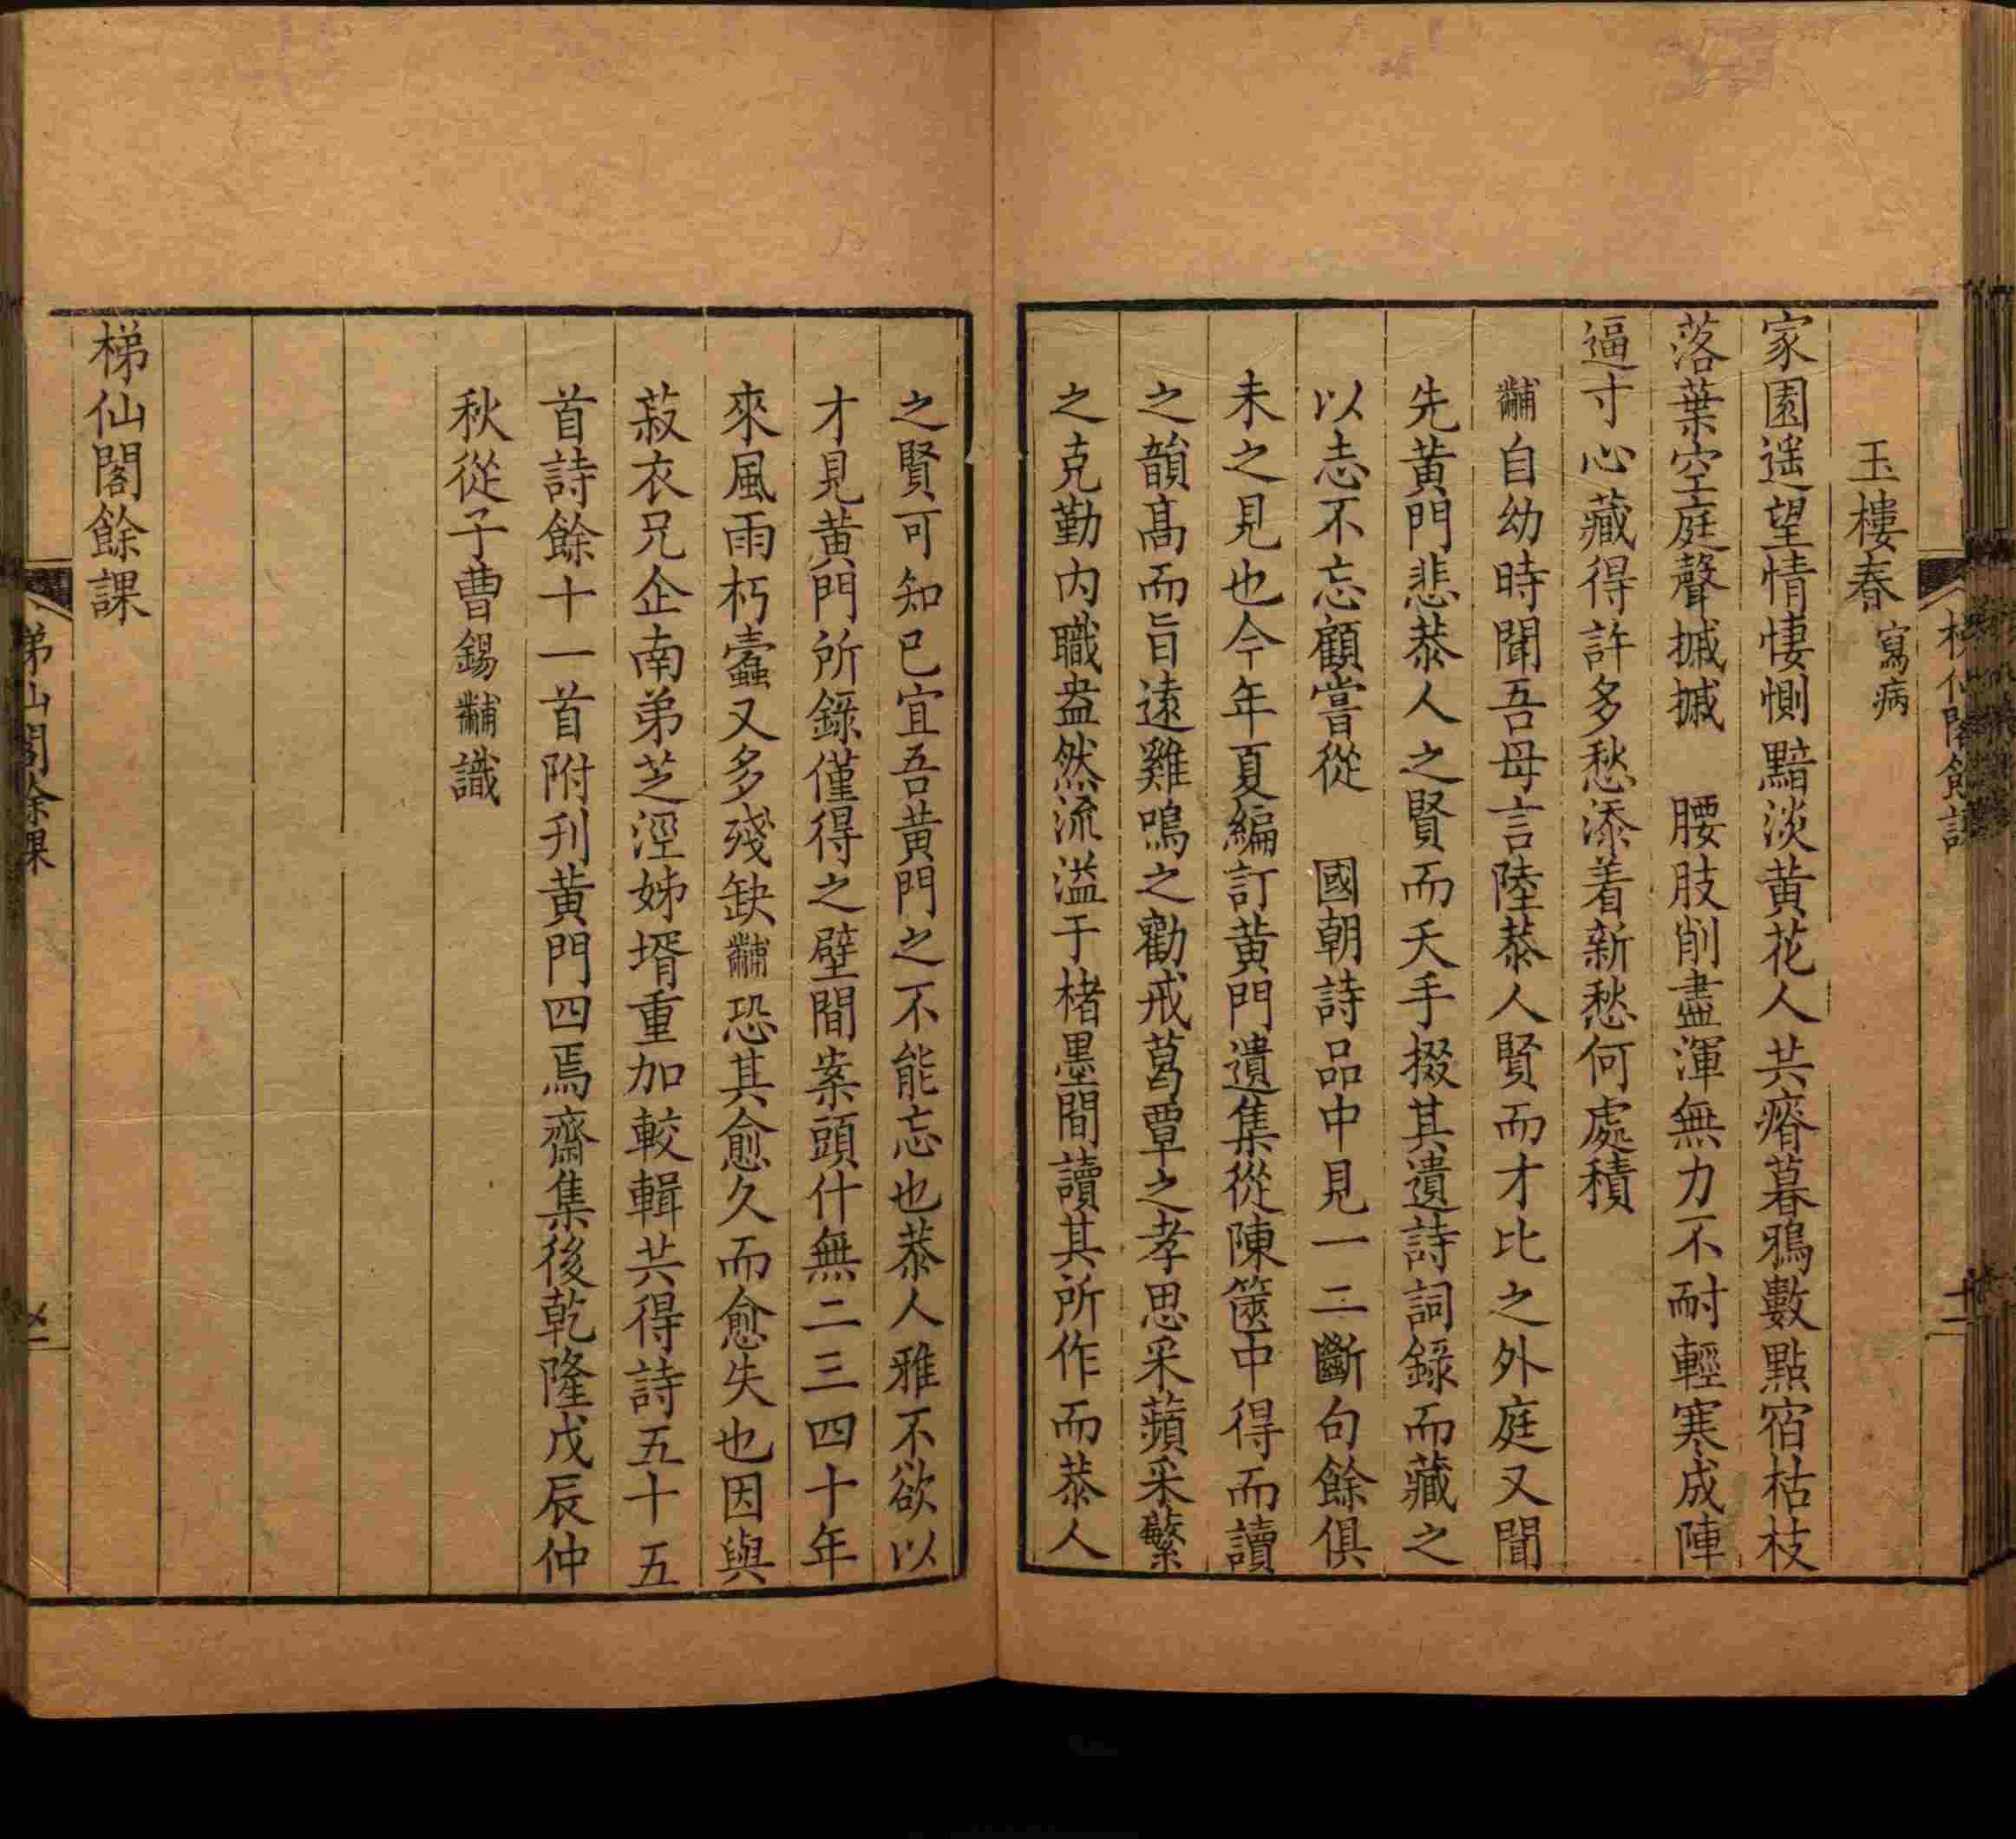 玉樓春 寫病
家園遥望情悽惻黯淡黄花人共瘠暮鴉數點宿枯枝
落葉空庭聲摵摵　腰肢削盡渾無力不耐輕寒成陣
逼寸心藏得許多愁添着新愁何處積
黼自幼時聞吾母言陸恭人賢而才比之外庭又聞
先黄門悲恭人之賢而夭手掇其遺詩詞錄而藏之
以志不忘顧嘗從　國朝詩品中見一二斷句餘俱
未之見也今年夏編訂黄門遺集從陳篋中得而讀
之韻髙而旨遠雞鳴之勸戒葛覃之孝思采蘋采蘩
之克勤内職盎然流溢于楮墨間讀其所作而恭人
之賢可知已宜吾黄門之不能忘也恭人雅不欲以
才見黄門所錄僅得之壁間案頭什無二三四十年
來風雨朽蠧又多殘缺黼恐其愈久而愈失也因與
菽衣兄企南弟芝涇姊壻重加較輯共得詩五十五
首詩餘十一首附刋黄門四焉齋集後乾隆戊辰仲
秋從子曹錫黼識
梯仙閣餘課
梯仙閣餘課